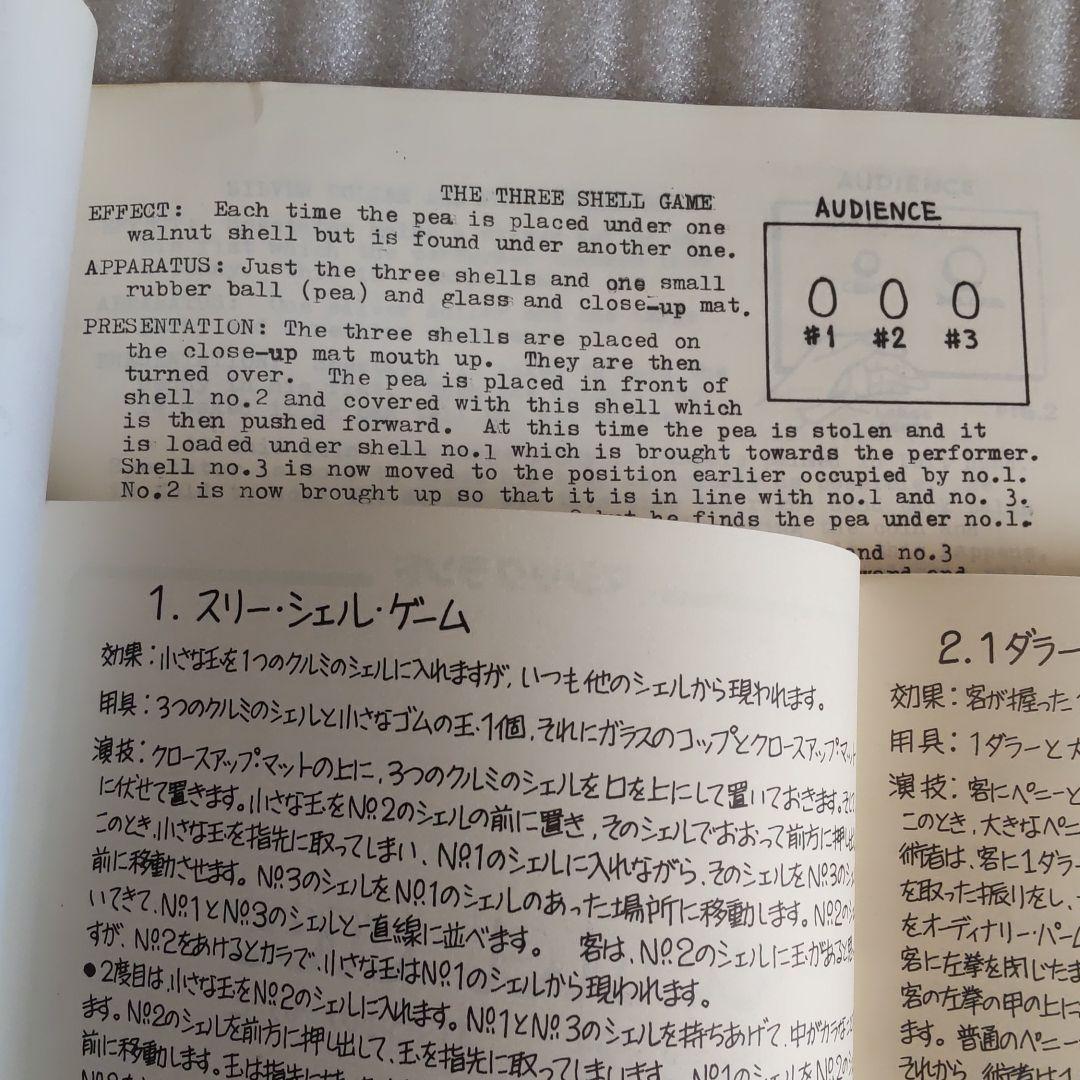 THE THREE SHELL GAME
EFFECT: Each time the pea is placed under one
walnut shell but is found under another one.
APPARATUS: Just the three shells and one small
rubber ball (pea) and glass and close-up mat.
PRESENTATION: The three shells are placed on
the close-up mat mouth up. They are then
turned over. The pea is placed in front of
shell no.2 and covered with this shell which
is then pushed forward. At this time the pea is stolen and it
is loaded under shell no.1 which is brought towards the performer.
Shell no.3 is now moved to the position earlier occupied by no.1.
No.2 is now brought up so that it is in line with no.1 and no. 3.
but he finds the pea under no.1.
and no.3
AUDIENCE
#1 #2 #3
1. スリー・シェル・ゲーム
効果:小さな玉を1つのクルミのシェルに入れますが、いつも他のシェルから現われます。
用具:3つのクルミのシェルと小さなゴムの玉1個、それにガラスのコップとクロースアップ・マット
演技:クロースアップ・マットの上に、3つのクルミのシェルを口を上にして置いておきます。
に伏せて置きます。小さな玉をNo.2のシェルの前に置き、そのシェルでおおって前方に押し出
このとき、小さな玉を指先に取ってしまい、No.1のシェルに入れながら、そのシェルをNo.3の
前に移動させます。No.3のシェルをNo.1のシェルのあった場所に移動します。No.2の
いてきて、No.1とNo.3のシェルと一直線に並べます。 客は、No.2のシェルに玉があると
すが、No.2をあけるとカラで、小さな玉はNo.1のシェルから現われます。
●2度目は、小さな玉をNo.2のシェルに入れます。No.1とNo.3のシェルを持ちあげて、中がカラな
ます。No.2のシェルを前方に押し出して、玉を指先に取ってしまいます。No.1のシェルをNo.2の
前に移動します。玉は指先に
2. 1ダラー
効果:客が握った
用具:1ダラーと大
演技:客にペニーと
このとき、大きなペニ
術者は、客に1ダラー
を取った振りをし、
をオーディナリー・パーム
客に左拳を閉じたま
客の左拳の甲の上に
ます。普通のペニー
それから、術者は1